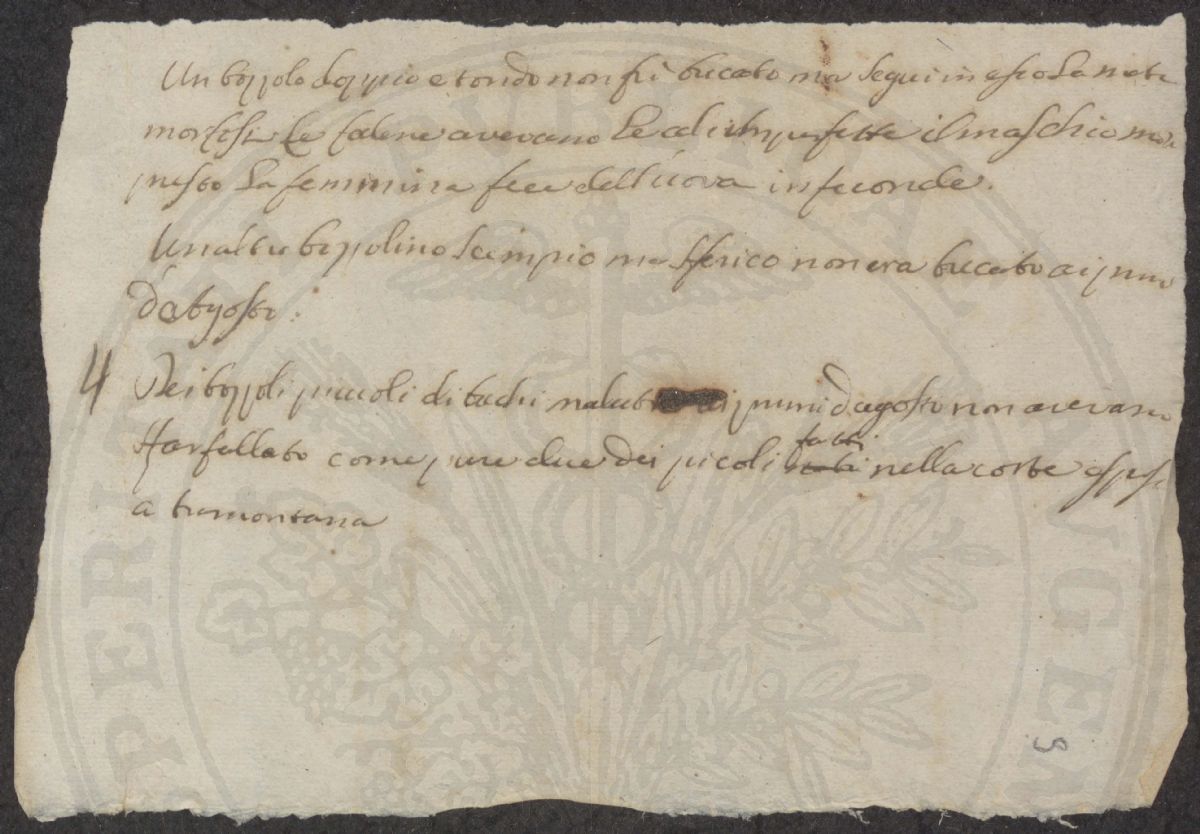 Un bozzolo doppio e tondo non fù bucato ma seguì in esso La meta
morfosi Le falene avevano Le ali imperfette il maschio morì
presto La femmina fece dell'uova infeconde.
Un altro bozzolino scempio ma sferico non era bucato ai primi
d'Agosto.
4 Dei bozzoli piccoli di bachi ai primi d'agosto non avevano
sfarfallato come pure due dei picoli fatti nella corte
a tramontana
8